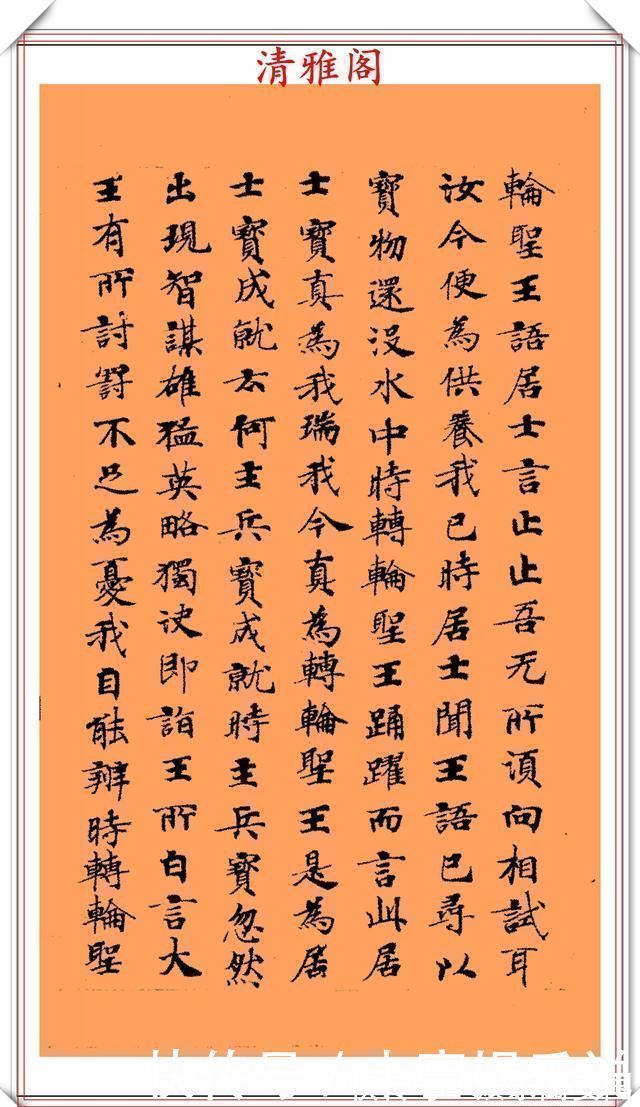 清雅阁
輪聖王語居士言止止吾无所須向相試耳
汝今便為供養我已時居士聞王語已尋以
寶物還没水中時轉輪聖王踊躍而言此居
士寶真為我瑞我今真為轉輪聖王是為居
士寶成就云何主兵寶成就時主兵寶忽然
出現智謀雄猛英略獨决即詣王所白言大
王有所討罸不足為憂我自能辦時轉輪聖